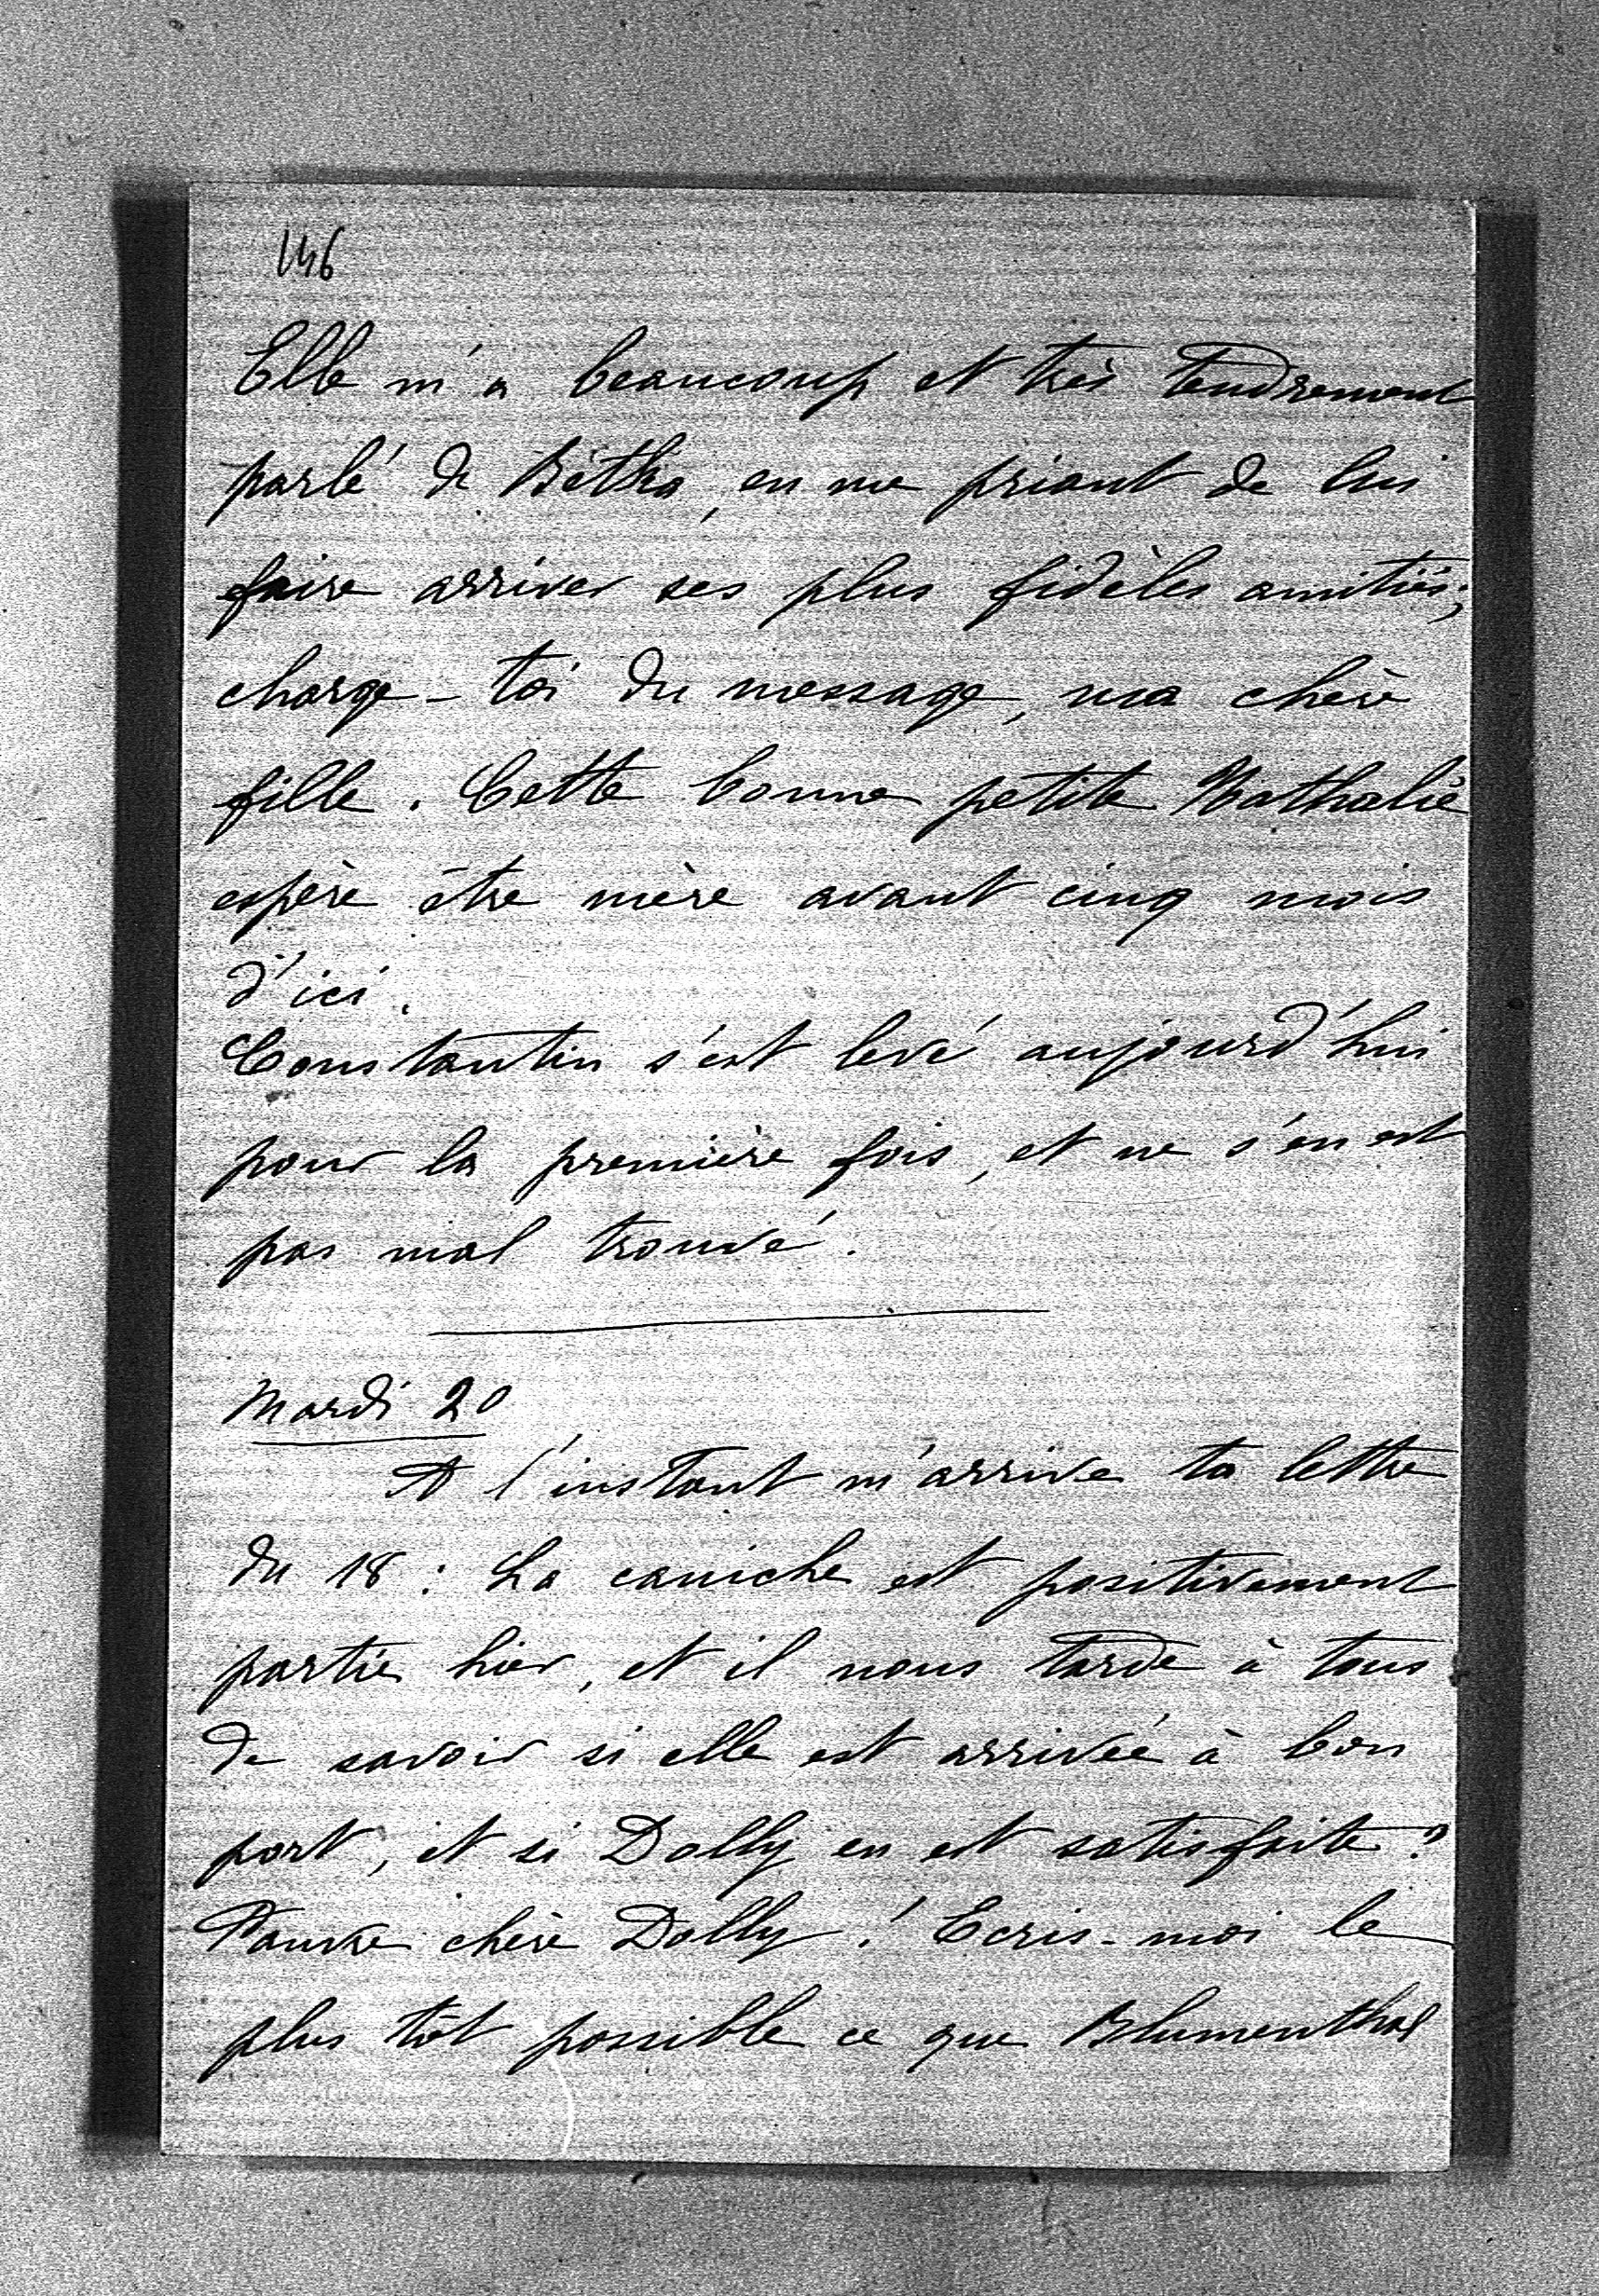 146
Elle m'a beaucoup et très tendrement
parlé de Bètka, en me priant de lui
faire arriver ses plus fidèles amitiés;
charge-toi du message, ma chère
fille. Cette bonne petite Nathalie
espère être mère avant cinq mois
d'ici.
Constantin s'est levé aujourd'hui
pour la première fois, et ne s'en est
pas mal trouvé.
Mardi 20
A l'instant m'arrive ta lettre
du 18: La caniche est positivement
partie hier, et il nous tarde à tous
de savoir si elle est arrivée à bon
port, et si Dolly en est satisfaite?
Pauvre chère Dolly! Ecris-moi le
plus tôt possible ce que Blumenthal